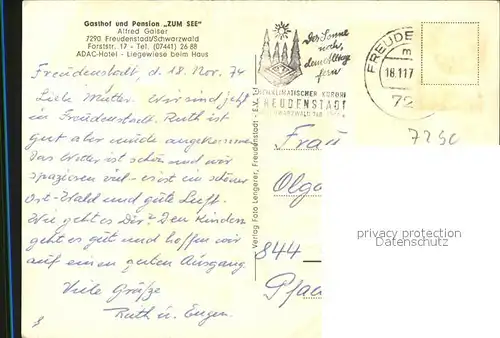 Gasthof und Pension „ZUM SEE"
Alfred Gaiser
7290 Freudenstadt/Schwarzwald
Forststr. 17 - Tel. (07441) 26 88
ADAC-Hotel - Liegewiese beim Haus
Freudenstadt, d. 18. Nov. 74
Liebe Mutter. Wir sind jetzt
in Freudenstadt. Ruth ist
gut aber müde angekommen
Das Wetter ist schön und wir
spazieren viel - es ist ein schöner
Ort - Wald und gute Luft.
Wie geht es Dir? Den Kindern
geht es gut und hoffen wir
auf einen guten Ausgang.
Viele Grüße
Ruth u. Eugen
Verlag Foto Lengerer, Freudenstadt
Der Sonne
näher,
dem Alltag
fern
HEILKLIMATISCHER KURORT
FREUDENSTADT
FREUDE
18.11.7
72
7290
Frau
Olga
844
Datenschutz
permission protected